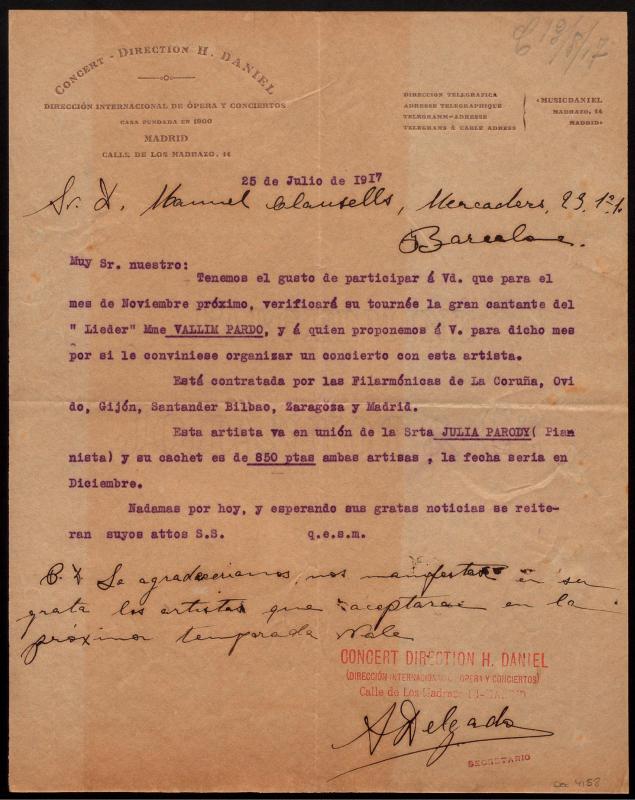 C 12/8/17
CONCERT - DIRECTION H. DANIEL
DIRECCIÓN INTERNACIONAL DE ÓPERA Y CONCIERTOS
CASA FUNDADA EN 1900
MADRID
CALLE DE LOS MADRAZO, 14
DIRECCION TELEGRAFICA
ADRESSE TELEGRAPHIQUE
TELEGRAMM-ADRESSE
TELEGRAMS & CABLE ADRESS
«MUSICDANIEL
MADRAZO, 14
MADRID»
25 de Julio de 1917
Sr. D. Manuel Clausells, Mercaders, 23, 1º 1ª
Barcelona.
Muy Sr. nuestro:
Tenemos el gusto de participar á Vd. que para el
mes de Noviembre próximo, verificará su tournée la gran cantante del
" Lieder" Mme VALLIM PARDO, y á quien proponemos á V. para dicho mes
por si le conviniese organizar un concierto con esta artista.
Está contratada por las Filarmónicas de La Coruña, Ovi
do, Gijón, Santander Bilbao, Zaragoza y Madrid.
Esta artista va en unión de la Srta JULIA PARODY( Pian
nista) y su cachet es de 850 ptas ambas artisas , la fecha seria en
Diciembre.
Nadamas por hoy, y esperando sus gratas noticias se reite-
ran suyos attos S.S. q.e.s.m.
P.D Le agradeceriamos, nos manifestase en su
grata los artistas que aceptarae en la
próxima temporada Vale
CONCERT DIRECTION H. DANIEL
(DIRECCIÓN INTERNACIONAL OPERA Y CONCIERTOS)
Calle de Los Madrazo 14-MADRID
A Delgado
SECRETARIO
4158